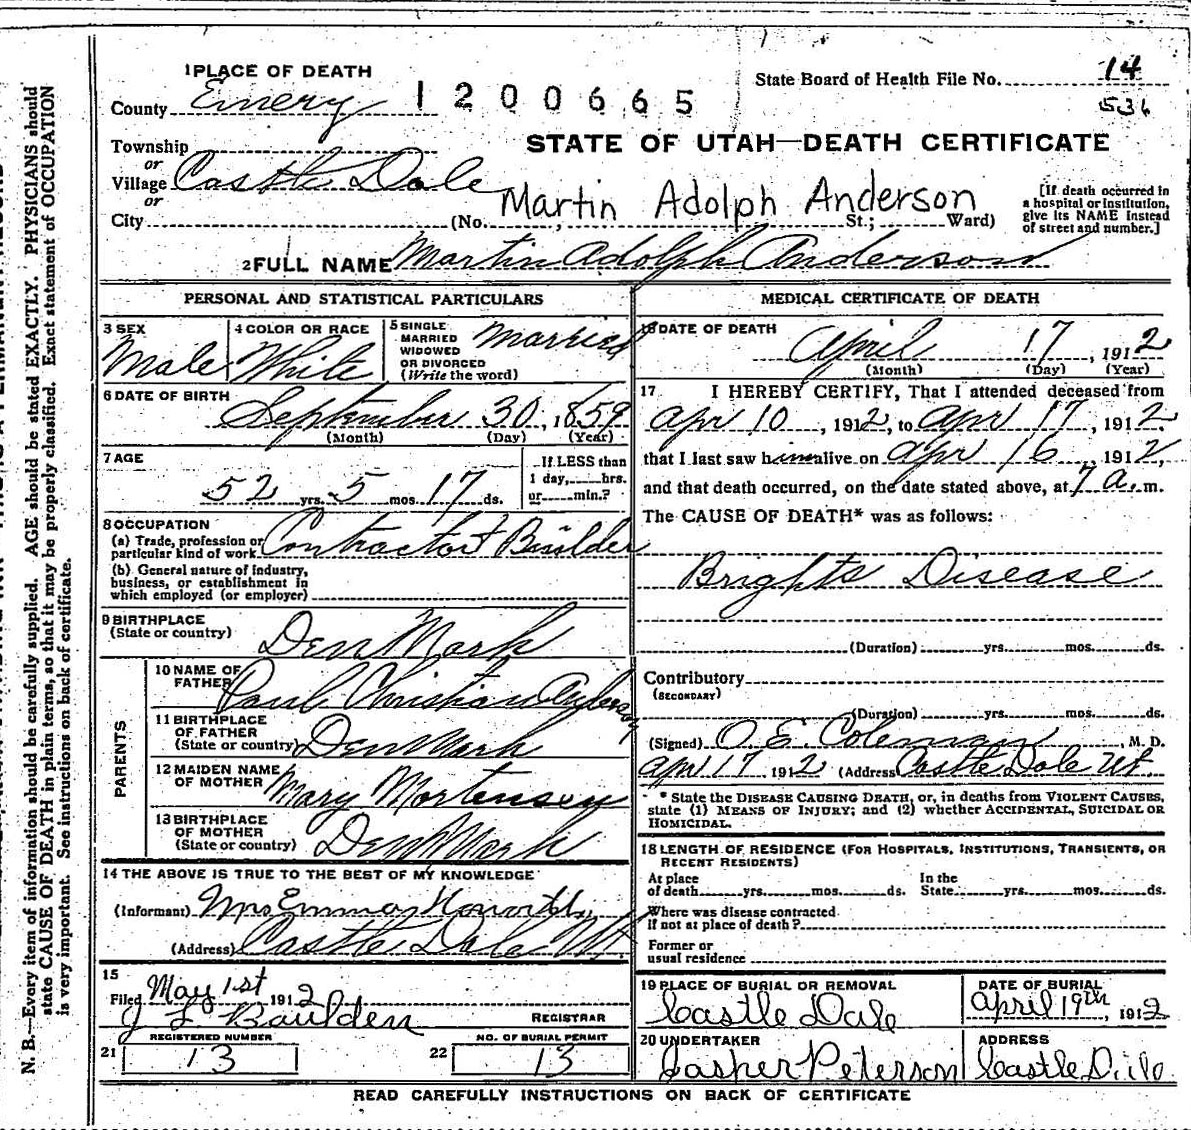 1 PLACE OF DEATH
County Emery 1200665
State Board of Health File No. 14
536
STATE OF UTAH—DEATH CERTIFICATE
Township
or
Village Castle Dale
or
City (No. St.; Ward)
Martin Adolph Anderson
[If death occurred in
a hospital or institution,
give its NAME instead
of street and number.]
2 FULL NAME Martin Adolph Anderson
PERSONAL AND STATISTICAL PARTICULARS
3 SEX
Male
4 COLOR OR RACE
White
5 SINGLE
MARRIED
WIDOWED
OR DIVORCED
(Write the word)
Married
6 DATE OF BIRTH
September 30, 1859
(Month) (Day) (Year)
7 AGE
52 yrs. 5 mos. 17 ds.
If LESS than
1 day, hrs.
or min.?
8 OCCUPATION
(a) Trade, profession or
particular kind of work Contractor Builder
(b) General nature of industry,
business, or establishment in
which employed (or employer)
9 BIRTHPLACE
(State or country) Den Mark
PARENTS
10 NAME OF
FATHER Paul Christian Anderson
11 BIRTHPLACE
OF FATHER
(State or country) Den Mark
12 MAIDEN NAME
OF MOTHER Mary Mortensen
13 BIRTHPLACE
OF MOTHER
(State or country) Den Mark
14 THE ABOVE IS TRUE TO THE BEST OF MY KNOWLEDGE
(Informant) Mrs Emma
(Address) Castle Dale Ut
15
Filed May 1st 1912
J L Boulden REGISTRAR
REGISTERED NUMBER
21 13
NO. OF BURIAL PERMIT
22 13
MEDICAL CERTIFICATE OF DEATH
16 DATE OF DEATH
April 17, 1912
(Month) (Day) (Year)
17 I HEREBY CERTIFY, That I attended deceased from
Apr 10, 1912, to Apr 17, 1912,
that I last saw him alive on Apr 16, 1912,
and that death occurred, on the date stated above, at 7 a. m.
The CAUSE OF DEATH* was as follows:
Brights Disease
(Duration) yrs. mos. ds.
Contributory
(SECONDARY)
(Duration) yrs. mos. ds.
(Signed) O. E. Coleman M. D.
Apr 17 1912 (Address) Castle Dale Ut.
* State the DISEASE CAUSING DEATH, or, in deaths from VIOLENT CAUSES,
state (1) MEANS OF INJURY; and (2) whether ACCIDENTAL, SUICIDAL OR
HOMICIDAL.
18 LENGTH OF RESIDENCE (FOR HOSPITALS, INSTITUTIONS, TRANSIENTS, OR
RECENT RESIDENTS)
At place
of death yrs. mos. ds.
In the
State yrs. mos. ds.
Where was disease contracted
if not at place of death?
Former or
usual residence
19 PLACE OF BURIAL OR REMOVAL
Castle Dale
DATE OF BURIAL
April 19th, 1912
20 UNDERTAKER
Jasper Peterson
ADDRESS
Castle Dale
READ CAREFULLY INSTRUCTIONS ON BACK OF CERTIFICATE
N. B.—Every item of information should be carefully supplied. AGE should be stated EXACTLY. PHYSICIANS should
state CAUSE OF DEATH in plain terms, so that it may be properly classified. Exact statement of OCCUPATION
is very important. See instructions on back of certificate.